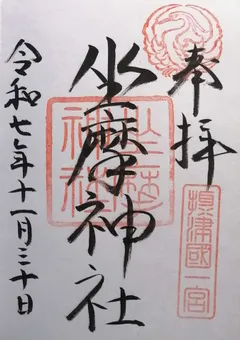 奉拝
摂津國一宮
坐摩神社
令和七年十一月三十日